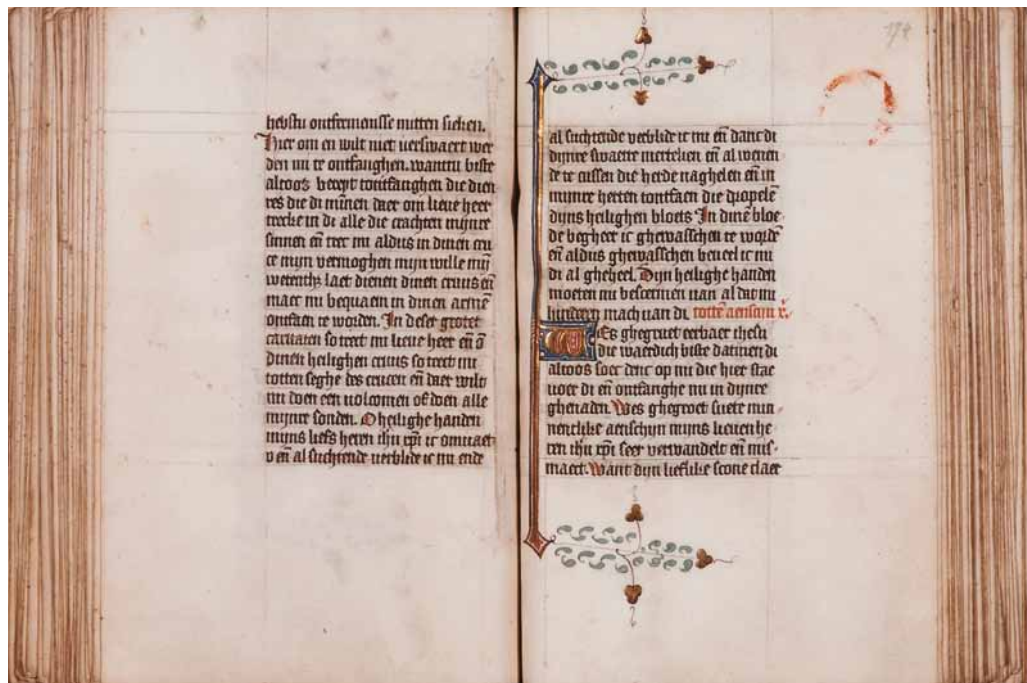 hebstu ontfermenisse mitten sieken.
Hier om en wilt niet verswaert wer
den mi te ontfanghen. wanttu biste
altoos bereyt tontfanghen die dien
res die di minnen daer om lieue heer
trecke in di alle die crachten mijnre
sinnen en̄ trec mi aldus in dinen cru
ce mijn vermoghen mijn wille mijn
laet dienen dinen cruus en̄
mact mi bequaem in dinen armē
ontfaen te worden. In deser groter
caritaten so trect mi lieue heer en̄ ō
dinen heilighen cruus so trect mi
totten seghe des crucen en̄ daer wilt
mi doen een volcomen of doen alle
mijnre sonden. O heilighe handen
mijns liefs heren ihū xpī ic omuaet
v en̄ al suchtende verblide ic mi ende
174
al suchtende verblide ic mi en̄ danc di
dijnre swaerre mertelien en̄ al wenen
de te cussen die herde naghelen en̄ in
mijnre herten tontfaen die dropelē
dijns heilighen bloets In dinē bloe
de begheer ic ghewasschen te wordē
en̄ aldus ghewasschen beueel ic mi
di al gheheel. Dijn heilighe handen
moeten mi bescermen van al dat mi
hinderen mach van di. totte aenscijn
Wes ghegruet eerbaer ihesu
die waerdich biste datmen di
altoos soec denc op mi die hier stae
voer di en̄ ontfanghe mi in dijnre
ghenaden. Wes ghegroet suete min
nentlike aenschijn mijns lieuen he
ren ihū xpī seer verwandelt en̄ mis
maect. Want dijn lieflike scone claer